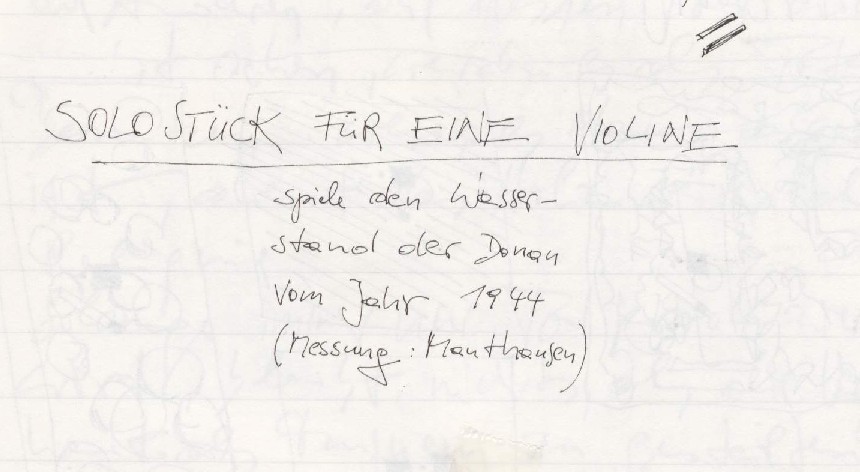 SOLOSTÜCK FÜR EINE VIOLINE
spiele den Wasser-
stand der Donau
vom Jahr 1944
(Messung: Mauthausen)